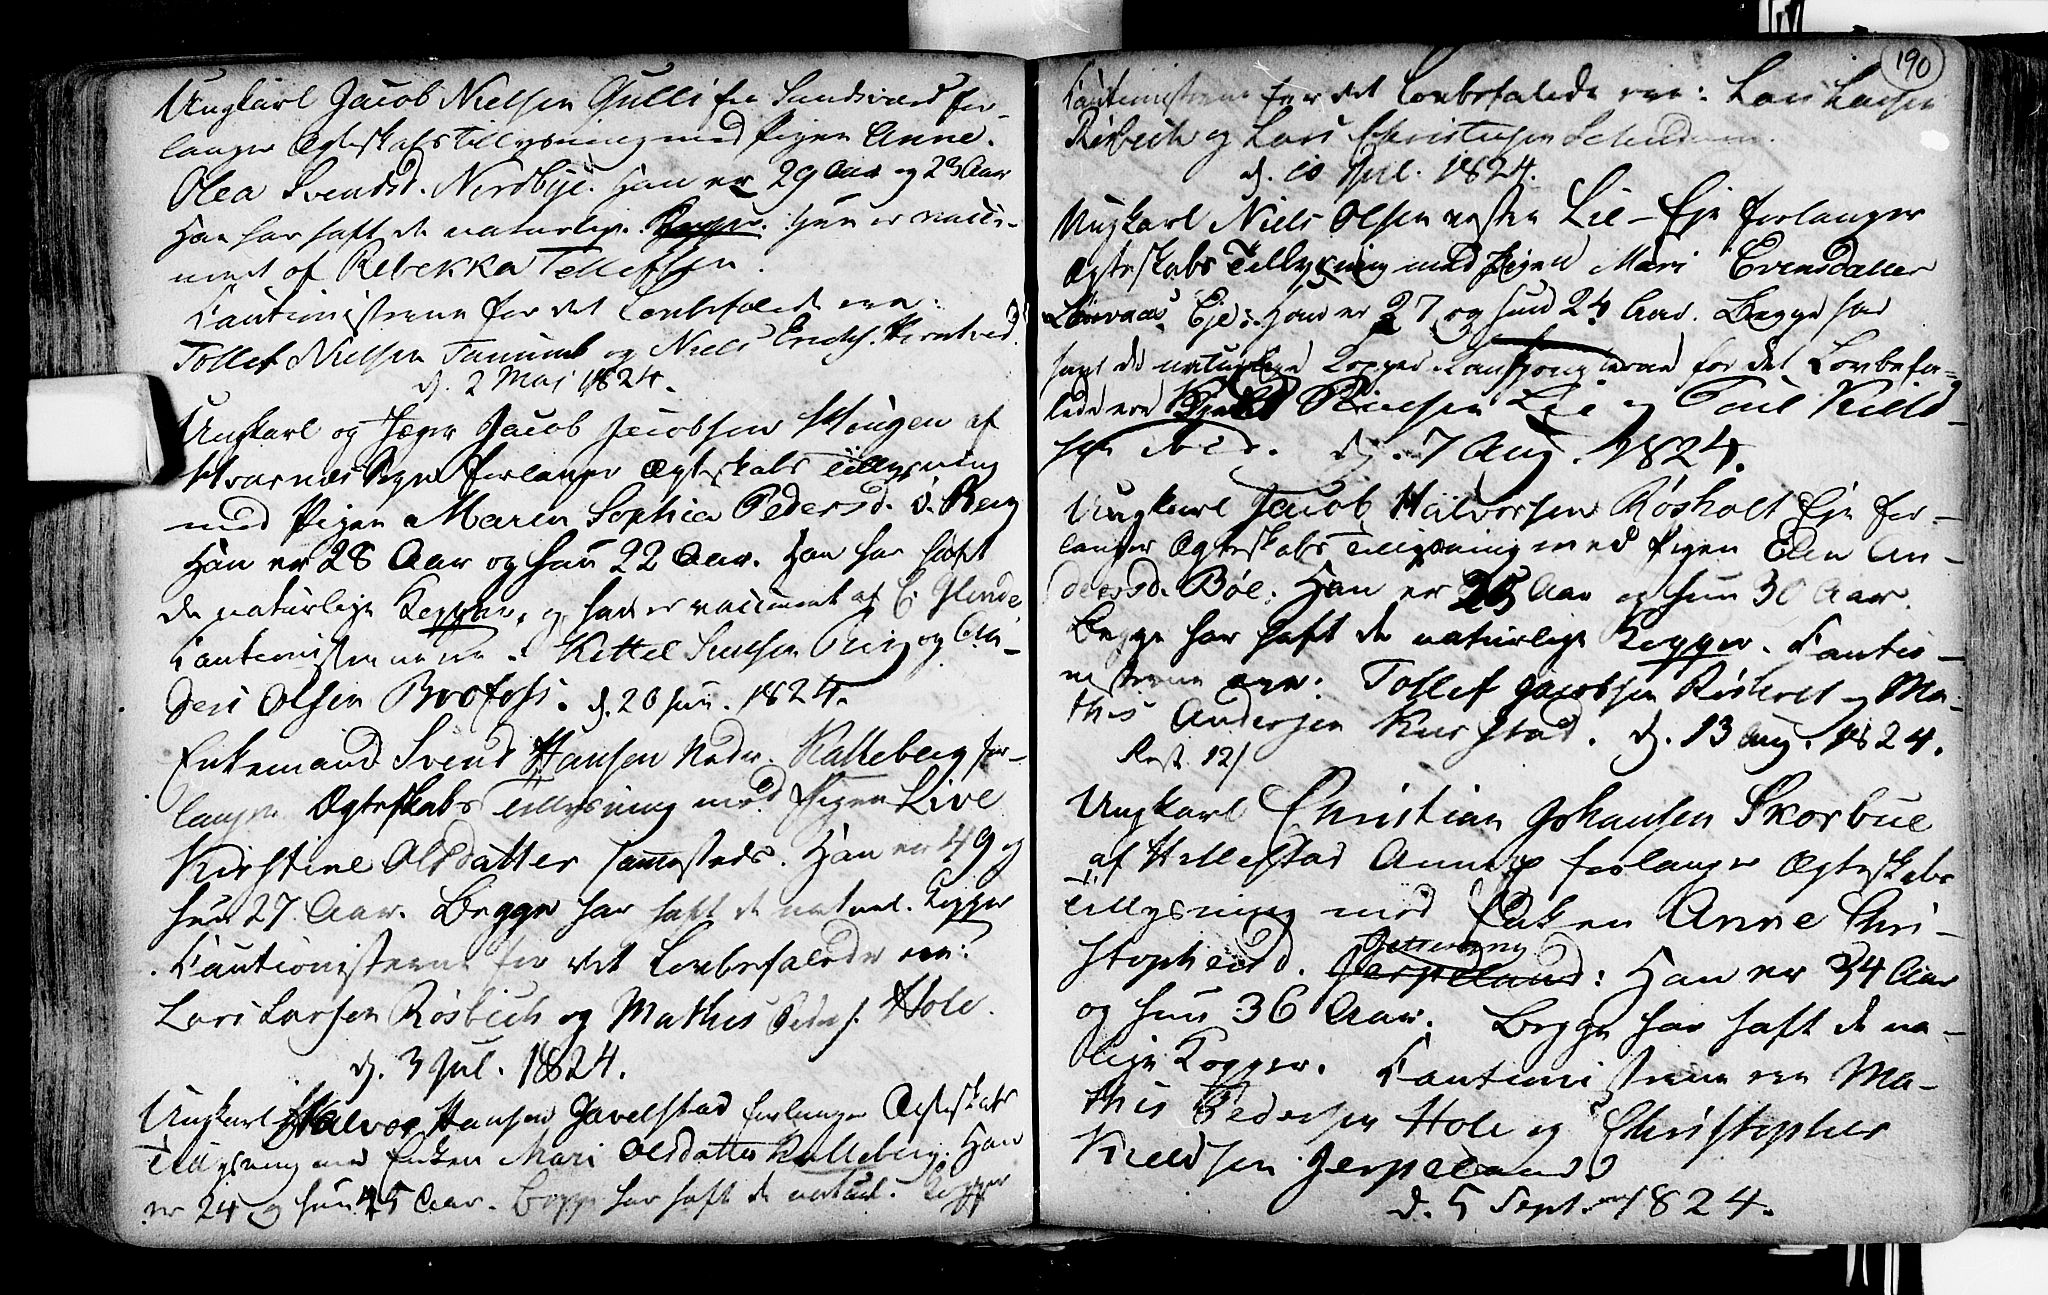 Ungkarl Jacob Nielsen Gulli fra Sandsværd for-
langer Ægteskabs Tillysning med Pigen Anne
Olea Svendsd. Nordbye. Han er 29 Aar og 23 Aar
Han har haft de naturlige Kopper. Hun er vacci-
neret af Rebekka Tollefsen.
Cautionisterne for det Lovbefalede ere:
Tollef Nielsen Fanum og Niels Erichs.
d. 2 Maj 1824.
Ungkarl og Jæger Jacob Jacobsen Haugen af
Hvarnes Sogn forlanger Ægteskabs Tillysning
med Pigen Maren Sophia Pedersd. Berg
Han er 28 Aar og hun 22 Aar. Han har haft
de naturlige Kopper, og hun er vaccineret af
Cautionisterne ere: Kittel og An-
ders Olsen Brofoss. d. 20 Jun. 1824.
Enkemand Svend Hansen Nedr. Kalleberg for-
langer Ægteskabs Tillysning med Pigen Live
Kirstine Olsdatter sammesteds. Han er 49 og
hun 27 Aar. Begge har haft de naturl. Kopper
Cautionisterne for det Lovbefalede ere:
Lars Larsen Røsbech og Mathis Peders. Hole.
d. 3 Jul. 1824.
Ungkarl Halvor Hansen Gavelstad forlanger Ægteskabs
Tillysning med Enken Mari Olsdatter Kalleberg. Han
er 24 og hun 45 Aar. Begge har haft de naturl. Kopper
190
Cautionisterne for det Lovbefalede ere: Lars Larsen
Røsbech og Lars Christensen
d. 10 Jul. 1824.
Ungkarl Niels Olsen Lie-Eje forlanger
Ægteskabs Tillysning med Pigen Mari Evensdatter
Eje: Han er 27 og hun 24 Aar. Begge har
haft de naturlige Kopper. Cautionisterne for det Lovbefa-
lede ere Lie og Poul
sen ibid. d. 7 Aug. 1824.
Ungkarl Jacob Halvorsen Røsholt Eje for-
langer Ægteskabs Tillysning med Pigen Elen An-
dersd. Bøe. Han er 25 Aar og hun 30 Aar.
Begge har haft de naturlige Kopper. Cautio-
nisterne ere: Tollef Jacobsen Røsholt og Ma-
this Andersen d. 13 Aug. 1824.
Rest. 12/
Ungkarl Christian Johansen Skorbue
af Hillestad Annex forlanger Ægteskabs
Tillysning med Enken Anne Chri-
stophersd. Jerpeland: Han er 34 Aar
og hun 36 Aar. Begge har haft de na-
lige Kopper. Cautionisterne ere Ma-
this Pedersen Hole og Christopher
Knudsen Jerpeland
d. 5 Sept. 1824.